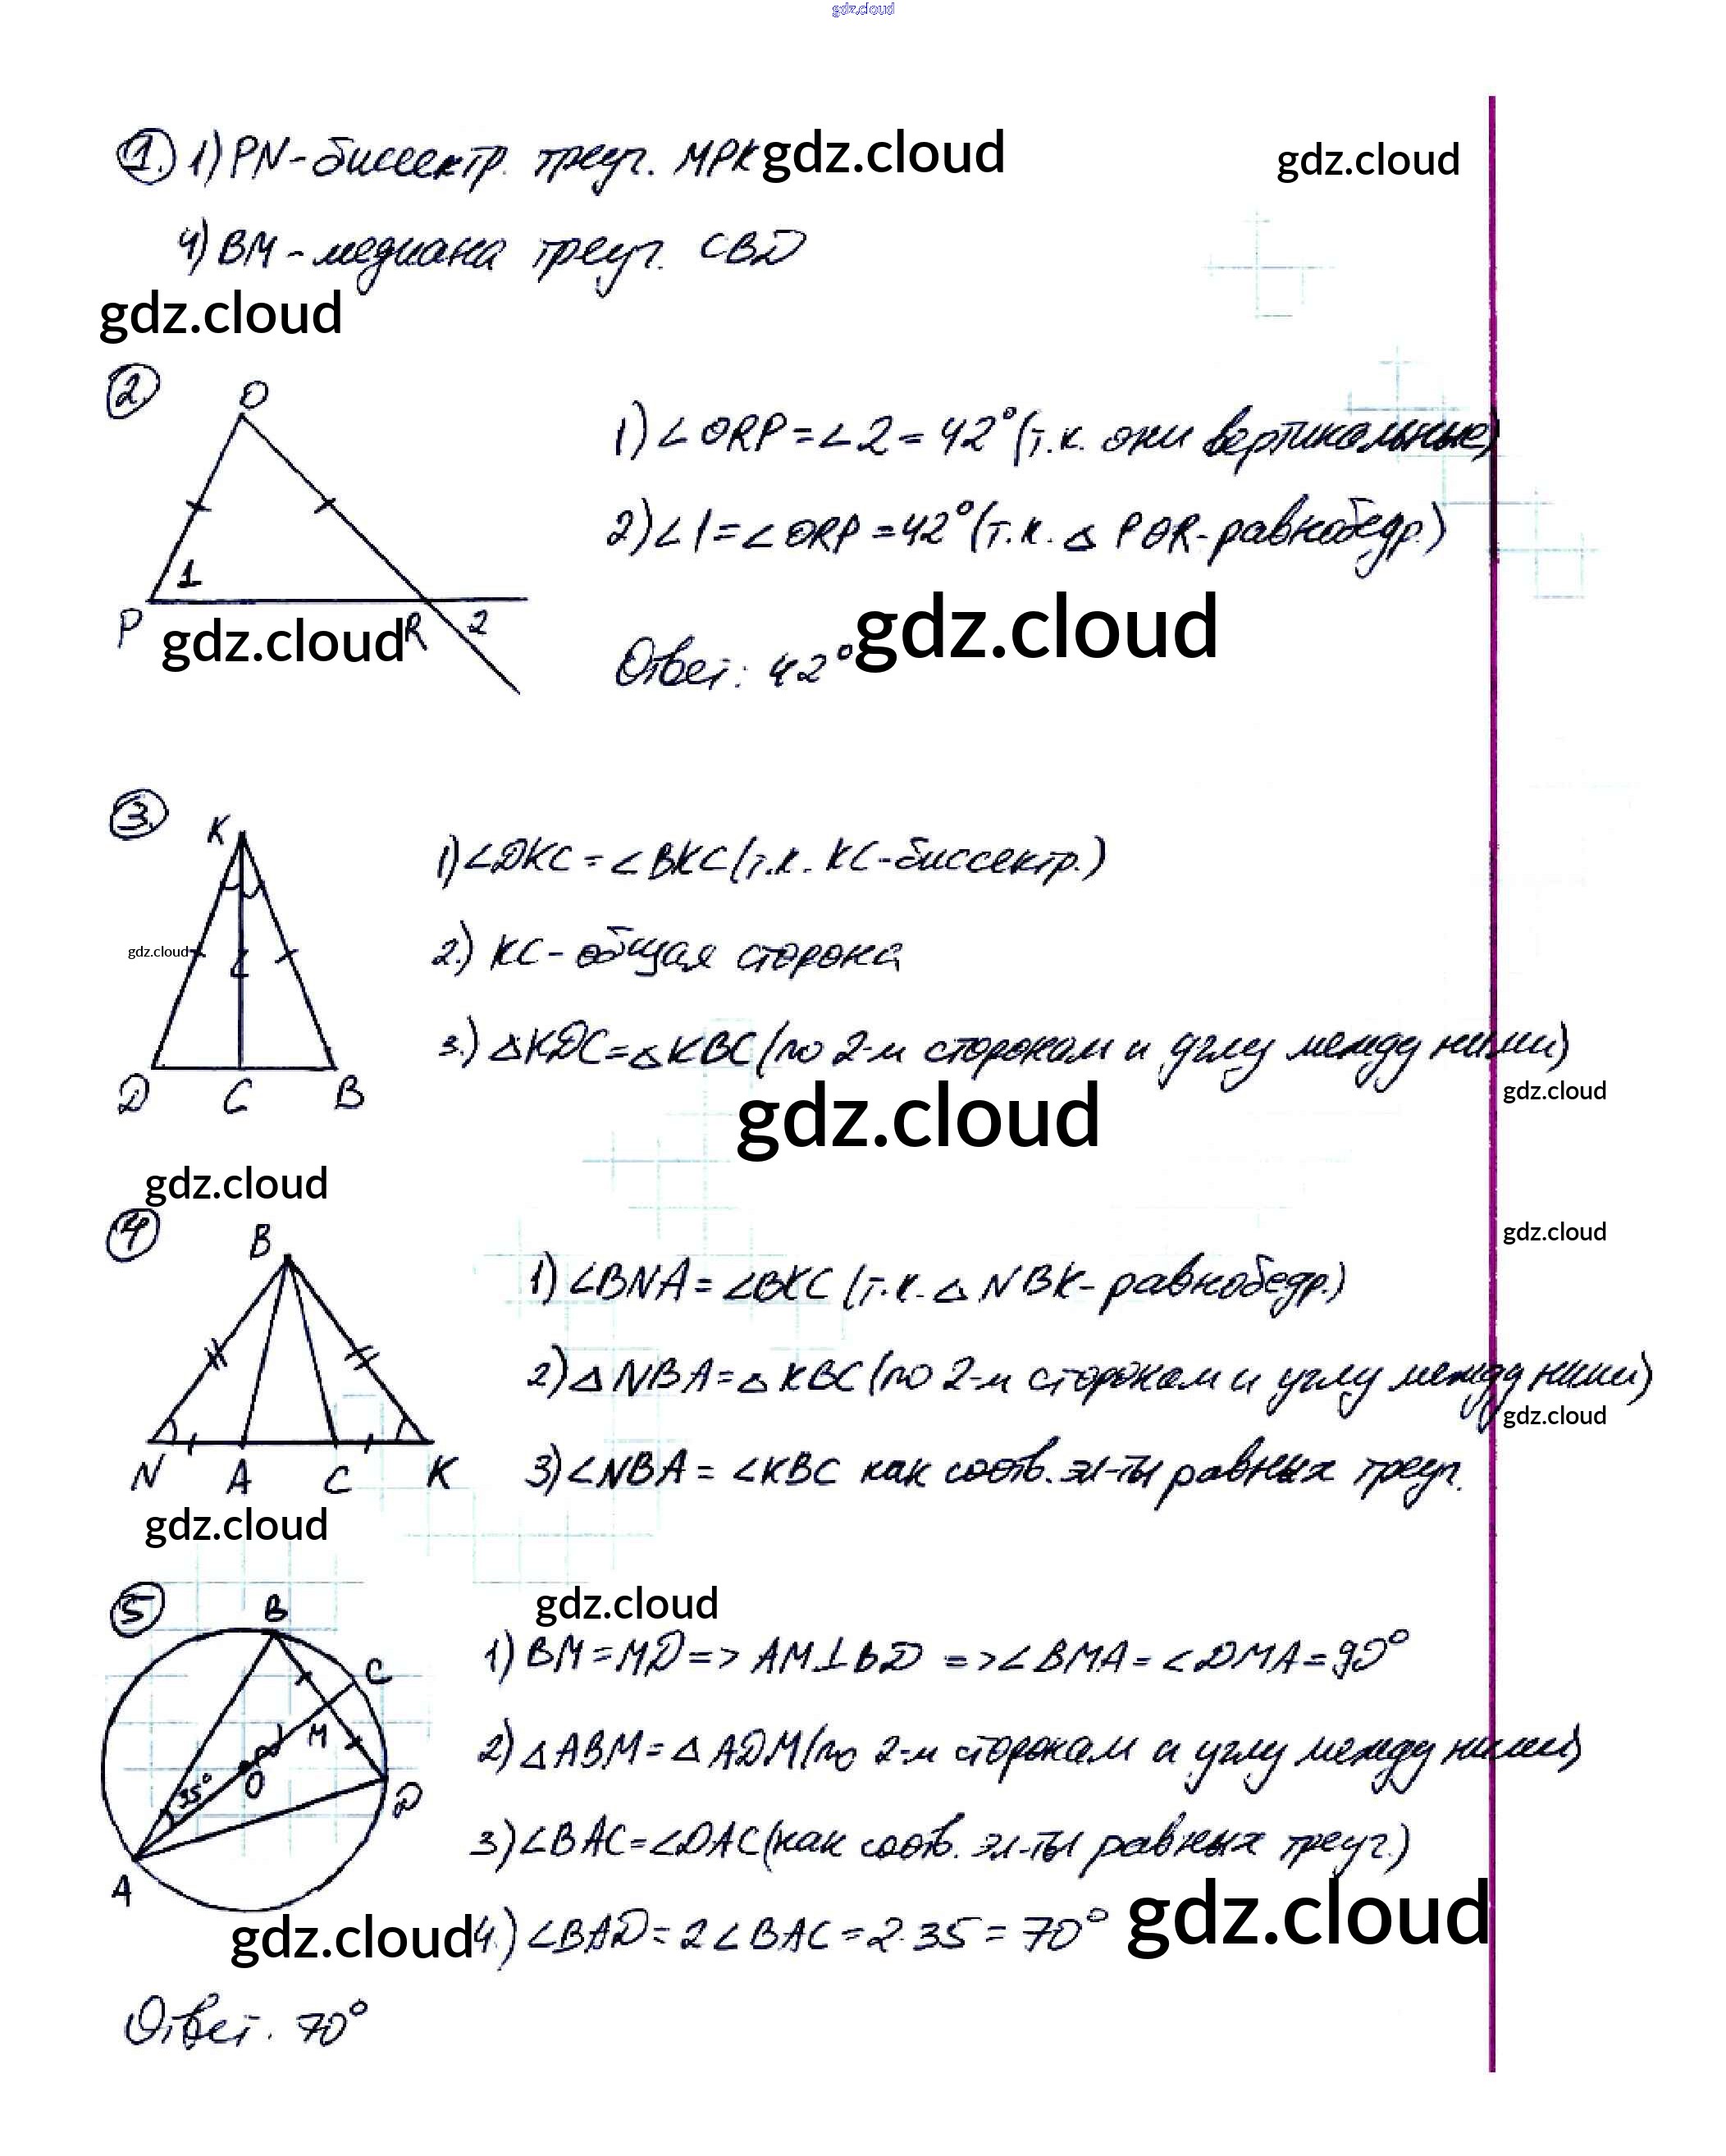 gdz.cloud
1. 1) PN - биссектр. треуг. МРК gdz.cloud gdz.cloud
4) ВМ - медиана треуг. CBD
gdz.cloud
2.
O
1) ∠ORP = ∠2 = 42° (т.к. они вертикальные)
2) ∠1 = ∠ORP = 42° (т.к. △ POR - равнобедр.)
1
P R 2
gdz.cloud
Ответ: 42° gdz.cloud
3.
K
1) ∠DKC = ∠BKC (т.к. KC - биссектр.)
2.) KC - общая сторона
gdz.cloud
3.) △KDC = △KBC (по 2-м сторонам и углу между ними)
D C B
gdz.cloud
gdz.cloud
gdz.cloud
4
B
gdz.cloud
1) ∠BNA = ∠BKC (т.к. △ NBK - равнобедр.)
2) △ NBA = △ KBC (по 2-м сторонам и углу между ними)
gdz.cloud
3) ∠NBA = ∠KBC как соотв. эл-ты равных треуг.
N A C K
gdz.cloud
5
gdz.cloud
B
C
M
35°
O
D
A
1) BM = MD => AM⊥BD => ∠BMA = ∠DMA = 90°
2) △ABM = △ADM (по 2-м сторонам и углу между ними)
3) ∠BAC = ∠DAC (как соотв. эл-ты равных треуг.)
gdz.cloud 4.) ∠BAD = 2∠BAC = 2·35 = 70° gdz.cloud
Ответ. 70°